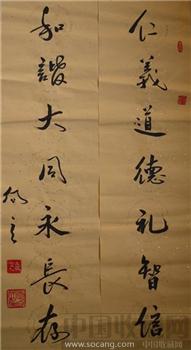 仁義道德礼智信
和諧大同永長存
www.socang.com
中国收藏网